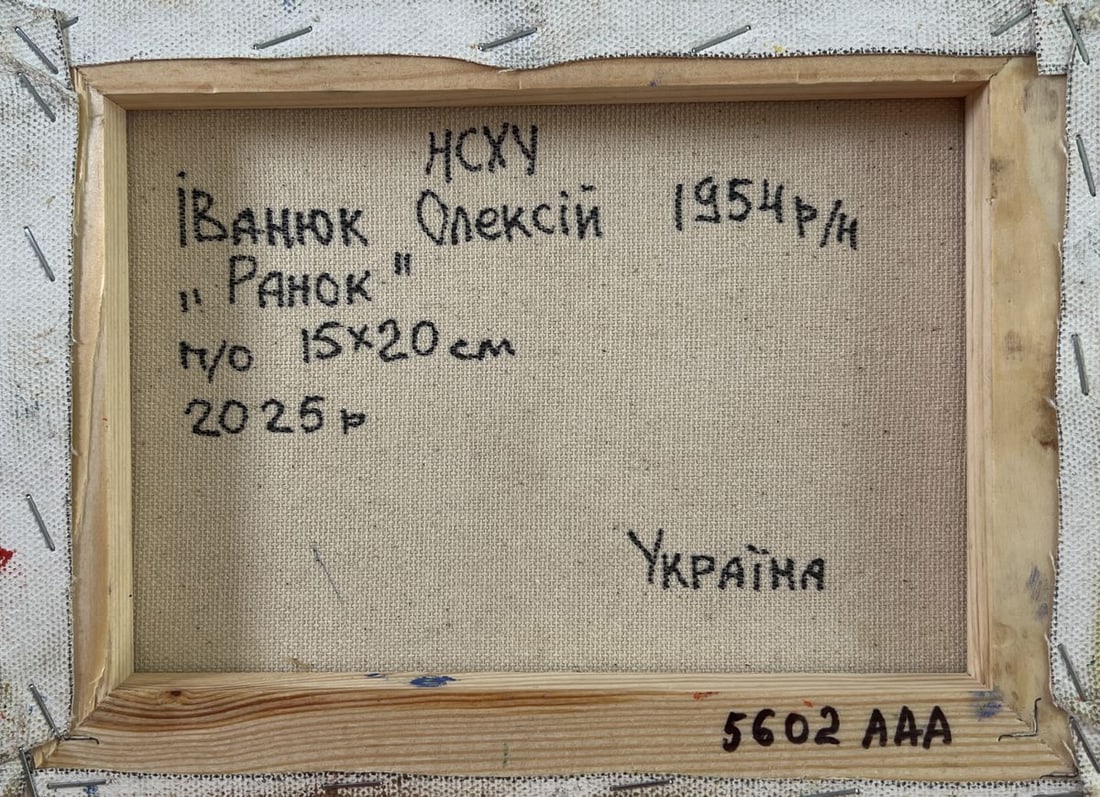 НСХУ
Іванюк Олексій 1954 р/н
„Ранок"
п/о 15×20 см
2025 р
Україна
5602 ААА